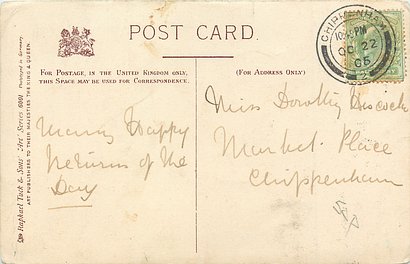 POST CARD.
FOR POSTAGE, IN THE UNITED KINGDOM ONLY,
THIS SPACE MAY BE USED FOR CORRESPONDENCE.
(FOR ADDRESS ONLY)
CHIPPENHAM
OC 22
05
Many Happy
Returns of the
Day
Miss Dorothy
Market Place
Chippenham
Raphael Tuck & Sons' "Art" Series 6001
ART PUBLISHERS TO THEIR MAJESTIES THE KING & QUEEN